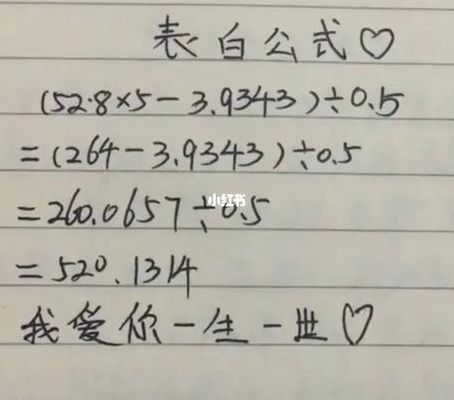 表白公式♡
(52.8×5-3.9343)÷0.5
=(264-3.9343)÷0.5
=260.0657÷0.5
小红书
=520.1314
我爱你一生一世♡